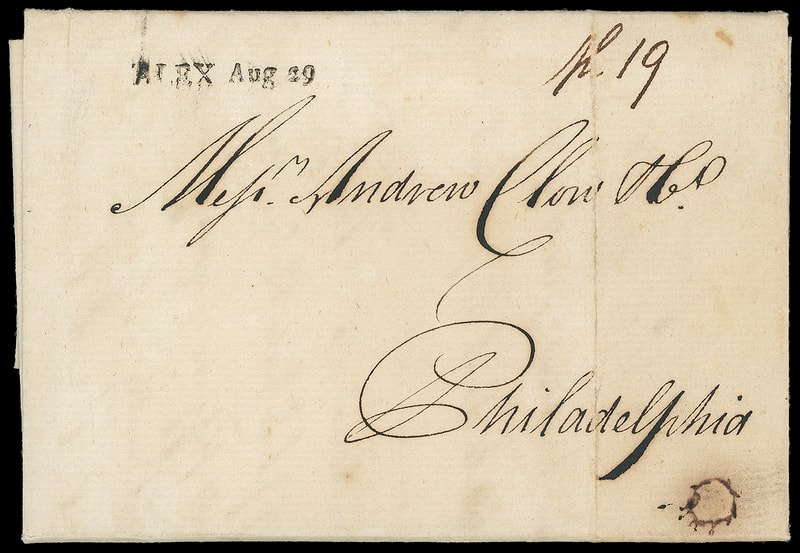 ALEX Aug 29
po. 19
Messrs. Andrew Clow & Co.
Philadelphia